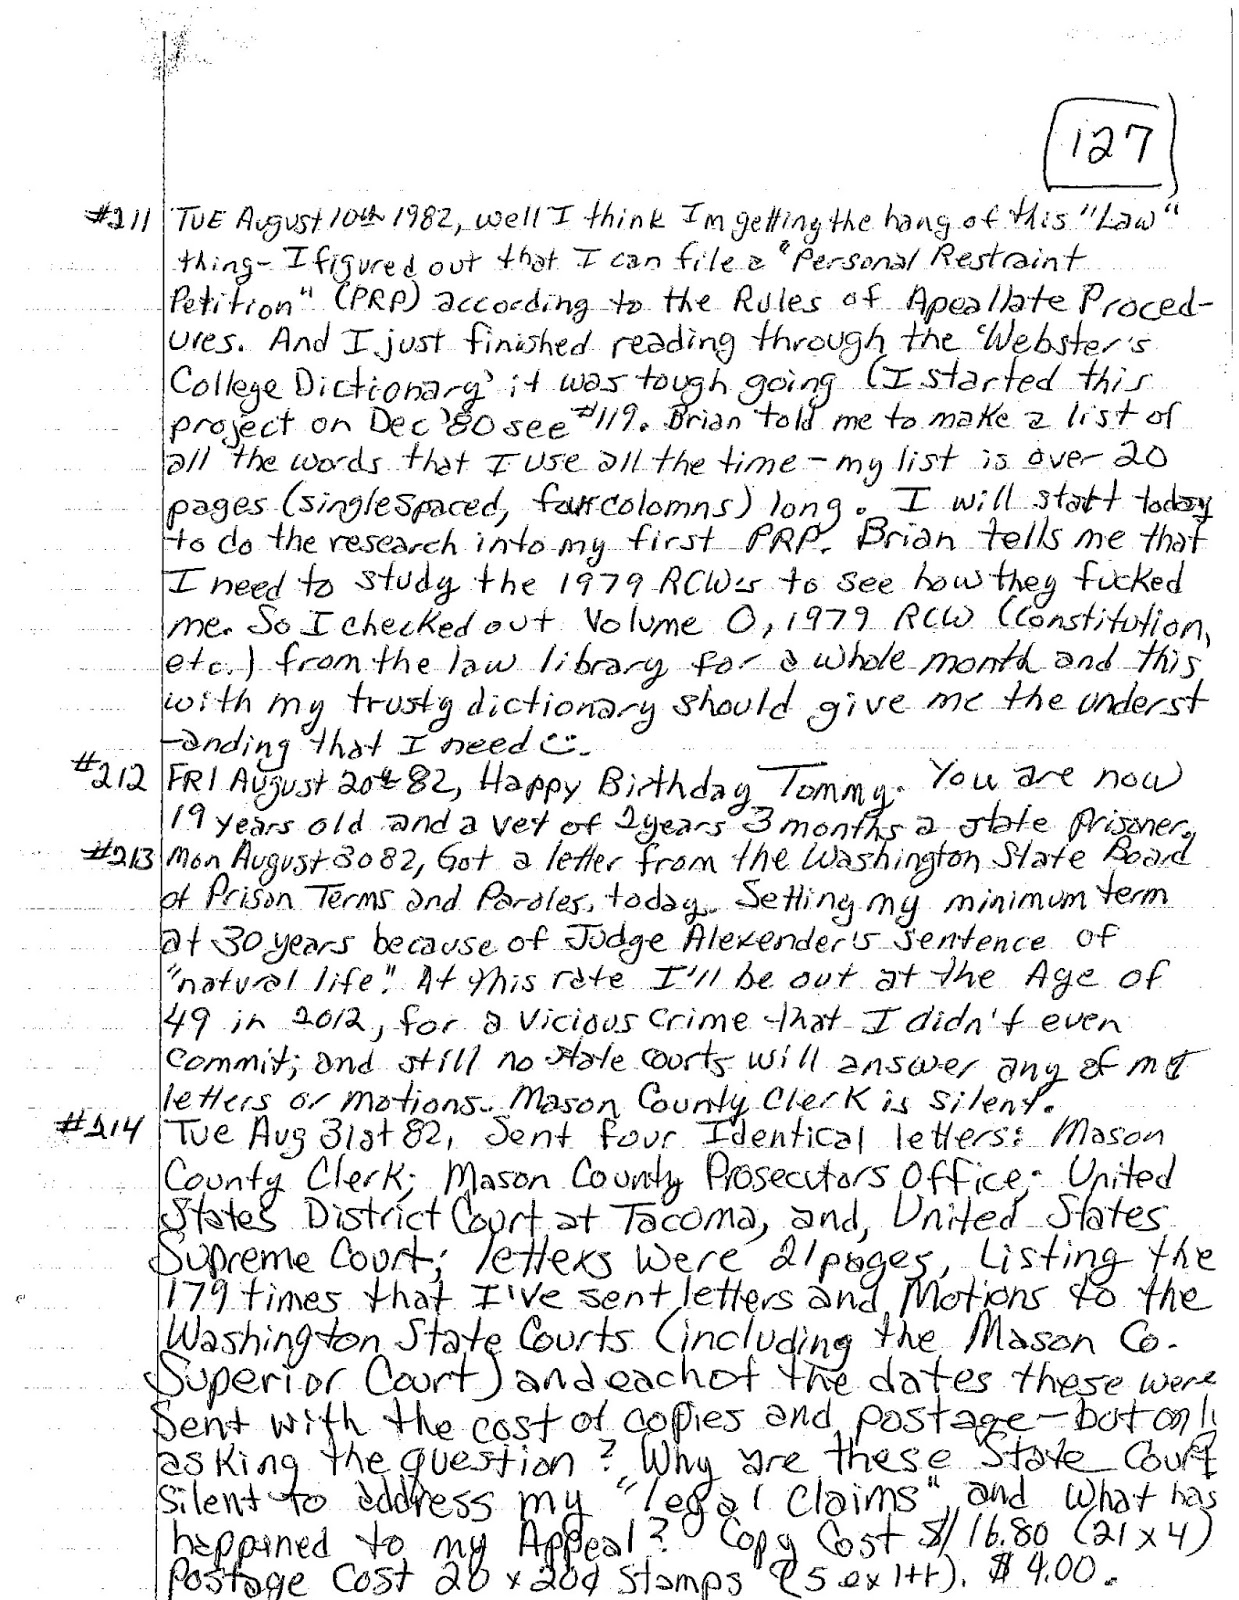 127
#211 TUE August 10th 1982, well I think Im getting the hang of this "Law"
thing- I figured out that I can file a "Personal Restraint
Petition" (PRP) according to the Rules of Apeallate Proced-
ures. And I just finished reading through the 'Webster's
College Dictionary' it was tough going (I started this
project on Dec '80 see #119. Brian told me to make a list of
all the words that I use all the time - my list is over 20
pages (single spaced, four colomns) long. I will start today
to do the research into my first PRP. Brian tells me that
I need to study the 1979 RCW's to see how they fucked
me. So I checked out Volume 0, 1979 RCW (Constitution,
etc.) from the law library for a whole month and this
with my trusty dictionary should give me the underst
-anding that I need ☺.
#212 FRI August 20th 82, Happy Birthday Tommy. You are now
19 years old and a vet of 2 years 3 months a state prisoner.
#213 Mon August 30 82, Got a letter from the Washington State Board
of Prison Terms and Paroles, today. Setting my minimum term
at 30 years because of Judge Alexender's sentence of
"natural life". At this rate I'll be out at the Age of
49 in 2012, for a vicious crime that I didn't even
commit; and still no state courts will answer any of my
letters or motions. Mason County Clerk is silent.
#214 Tue Aug 31st 82, Sent four Identical letters: Mason
County Clerk; Mason County Prosecutors Office; United
States District Court at Tacoma, and, United States
Supreme Court; letters were 21 pages, Listing the
179 times that I've sent letters and Motions to the
Washington State Courts (including the Mason Co.
Superior Court) and each of the dates these were
sent with the cost of copies and postage - but onl
asking the question? Why are these State Court
silent to address my "legal claims", and what has
happened to my Appeal? Copy Cost $16.80 (21 x 4)
Postage Cost 20 x 20¢ stamps (5 ex ltr). $4.00.